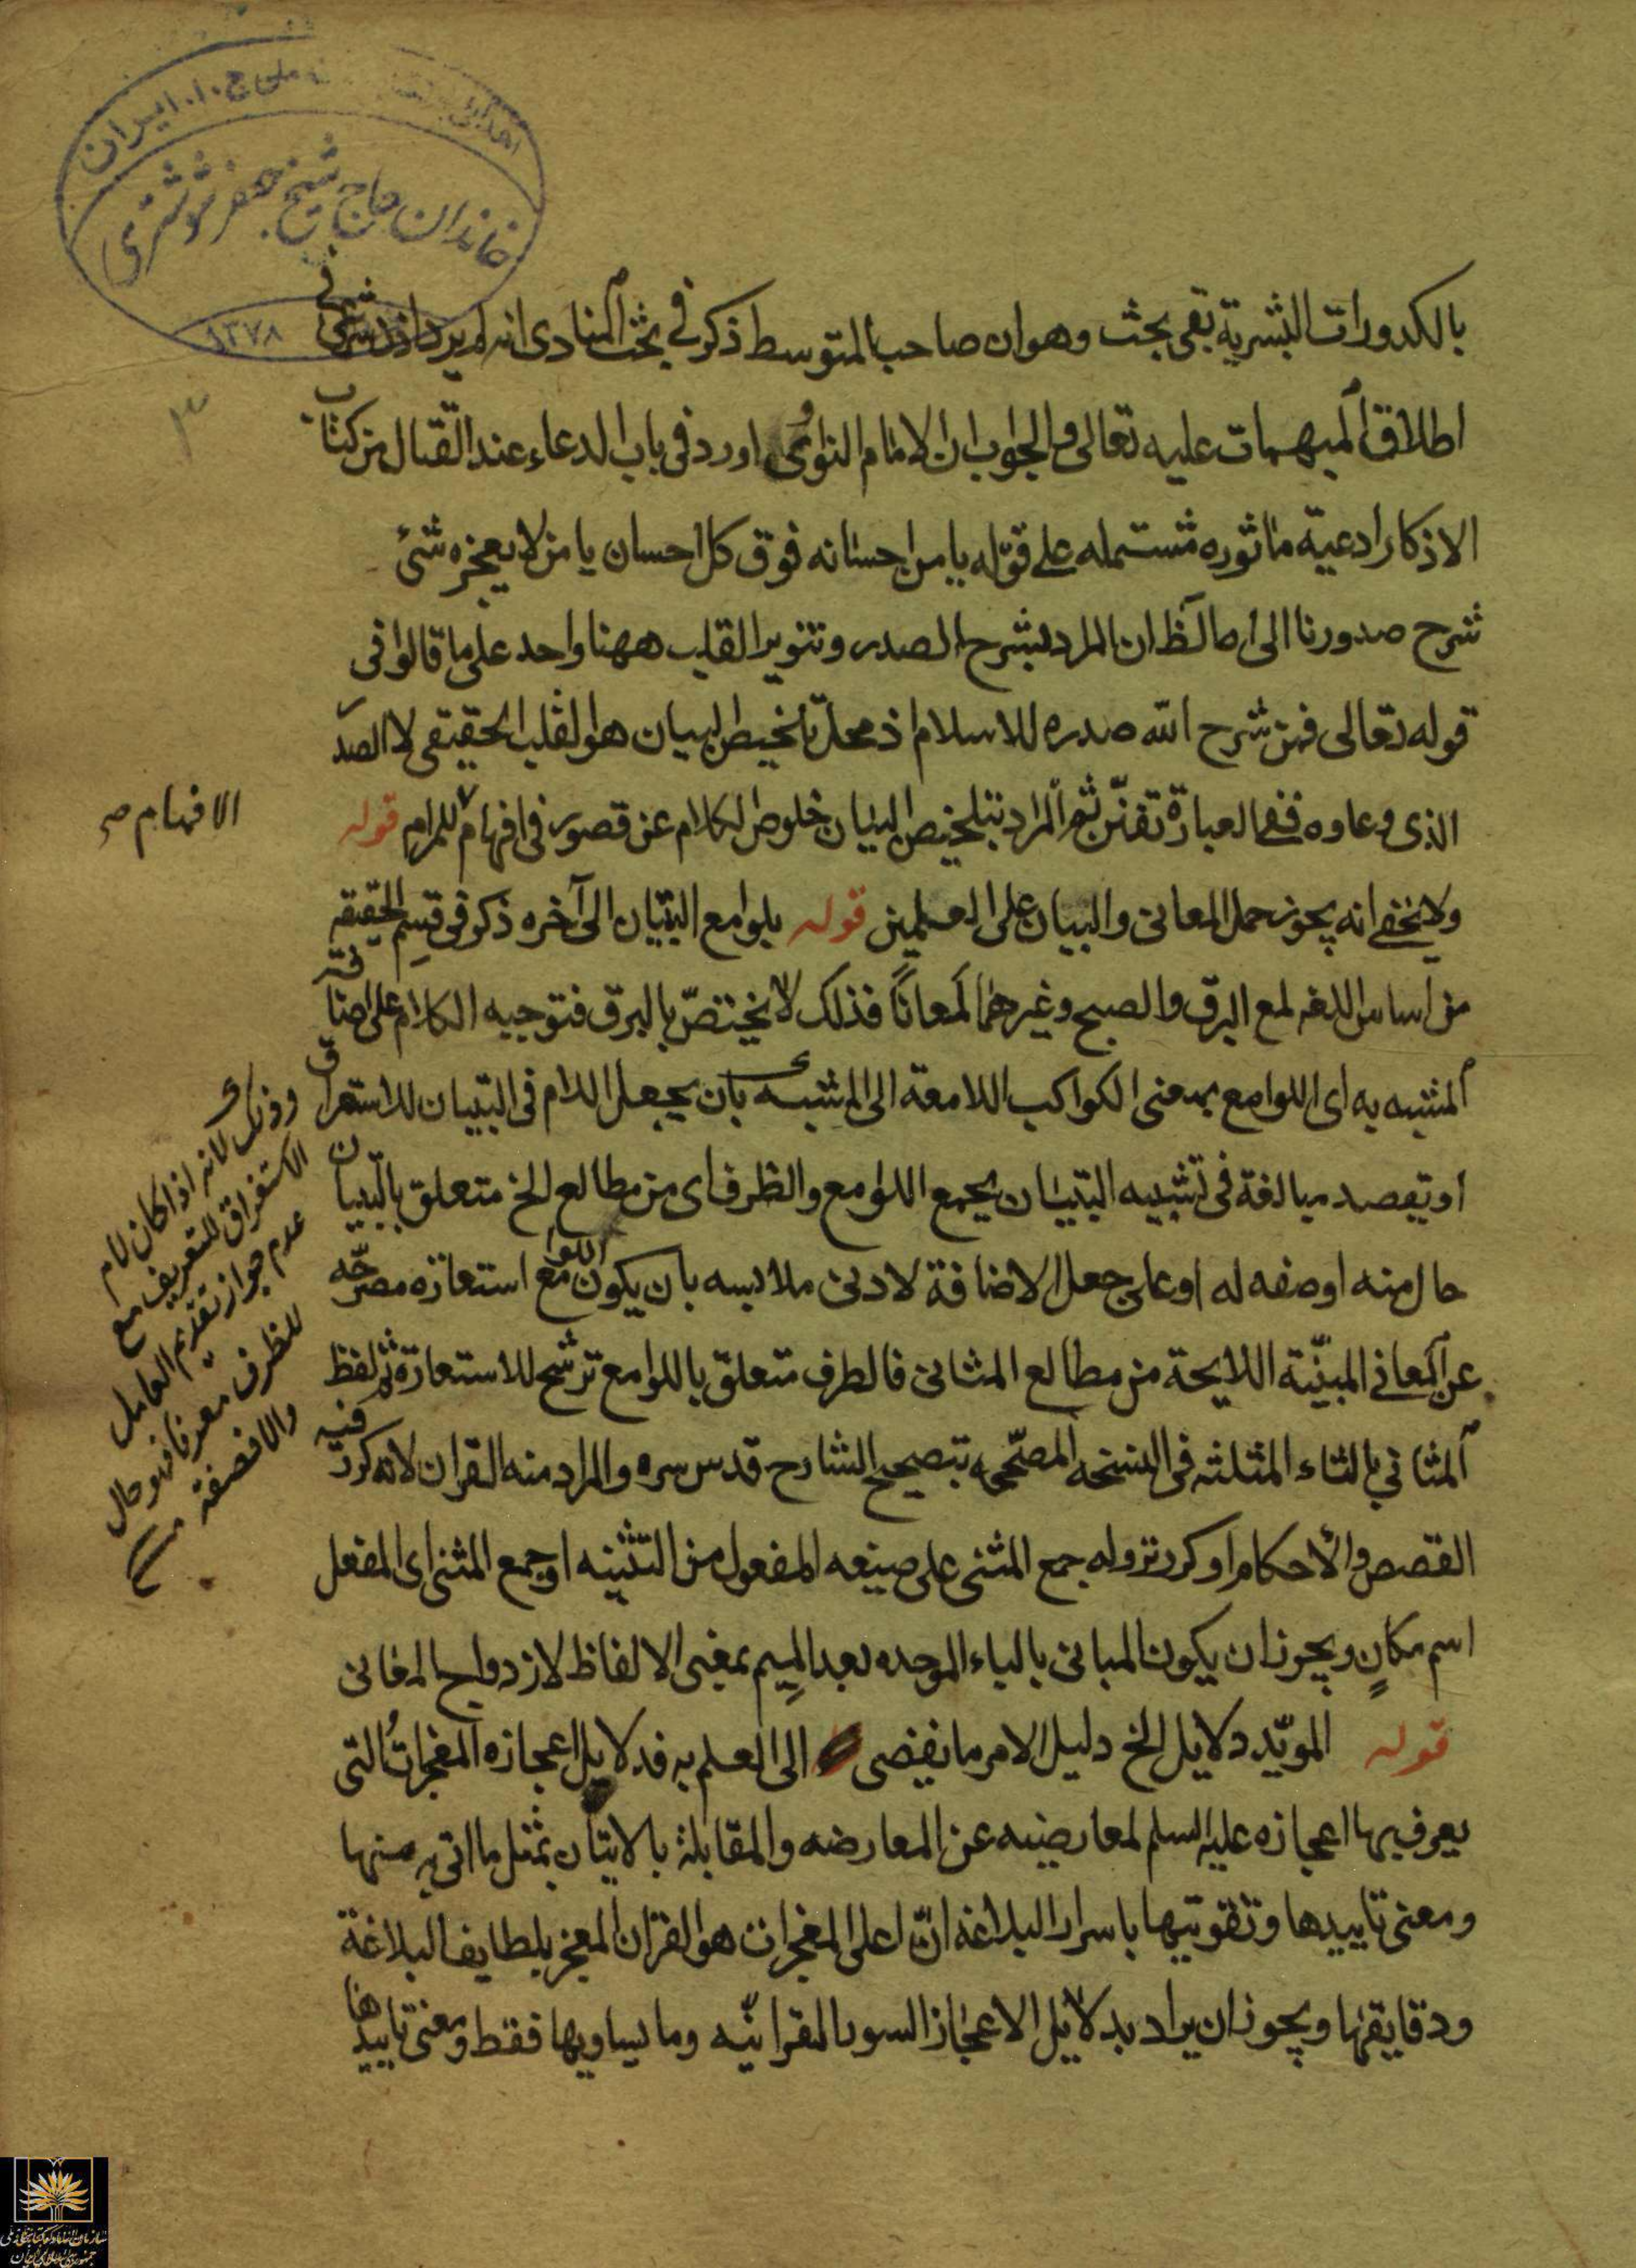 ایران
خاندان حاج شیخ جعفر شوشتری
۱۳۷۸
۳
بالكدورات البشرية بقى بحث وهو ان صاحب المتوسط ذكر في بحث المنادى انه لم يرد اذن شرعى في
اطلاق المبهمات عليه تعالى والجواب ان الامام النواوى اورد في باب الدعاء عند القتال من كتاب
الاذكار ادعية ماثوره مشتمله على قوله يا من احسانه فوق كل احسان يا من لا يعجزه شئ
شرح صدورنا الى اه الظ ان المراد بشرح الصدر وتنوير القلب ههنا واحد على ما قالوا في
قوله تعالى فمن شرح الله صدره للاسلام اذ محل تلخيص البيان هو القلب الحقيقى لا الصدر
الذى وعاوه ففى العبارة تفنّن ثم المراد بتلخيص البيان خلوص الكلام عن قصور في افهام للمرام قوله
الافهام صح
ولا يخفى انه يجوز حمل المعانى والبيان على العلمين قوله بلوامع التبيان الى آخره ذكر في قسم الحقيقه
من اساس اللغه لمع البرق والصبح وغيرهما لمعاناً فذلك لا يختصّ بالبرق فتوجيه الكلام على اضافة
المشبه به اى اللوامع بمعنى الكواكب اللامعة الى المشبه بان يجعل اللام في التبيان للاستغراق
او يقصد مبالغة في تشبيه التبيان بجمع اللوامع والظرف اى من مطالع الخ متعلق بالتبيان
حال منه او صفه له او على جعل الاضافة لادنى ملابسه بان يكون اللوامع استعاره مصرّحه
عن المعاني المبيّنة اللايحة من مطالع المثانى فالظرف متعلق باللوامع ترشح للاستعارة ثم لفظ
المثاني بالثاء المثلثه في النسخه المصحّحه بتصحيح الشارح قدس سره والمراد منه القران لانه كرر فيه
القصص والاحكام او كرر نزوله جمع المثنى على صيغه المفعول من التثنيه او جمع المثنى اى المفعل
اسم مكانٍ ويجوز ان يكون المبانى بالباء الموحده بعد الميم بمعنى الالفاظ لازدواج المعانى
قوله المويّد دلايل الخ دليل الامر ما يفضى الى العلم به فدلايل اعجازه المعجزات التى
يعرف بها اعجازه عليه السلم لمعارضيه عن المعارضه والمقابلة بالاتيان بمثل ما اتى به منها
ومعنى تاييدها وتقويتها باسرار البلاغه انّ اعلى المعجزات هو القران المعجز بلطايف البلاغة
ودقايقها ويجوز ان يراد بدلايل الاعجاز السور القرانيّه وما يساويها فقط ومعنى تاييدها
وذلك لانه اذا كان لام
الاستغراق للتعريف مع
عدم جواز تقديم العامل
للظرف معرفا فهو حال
والا فصفة